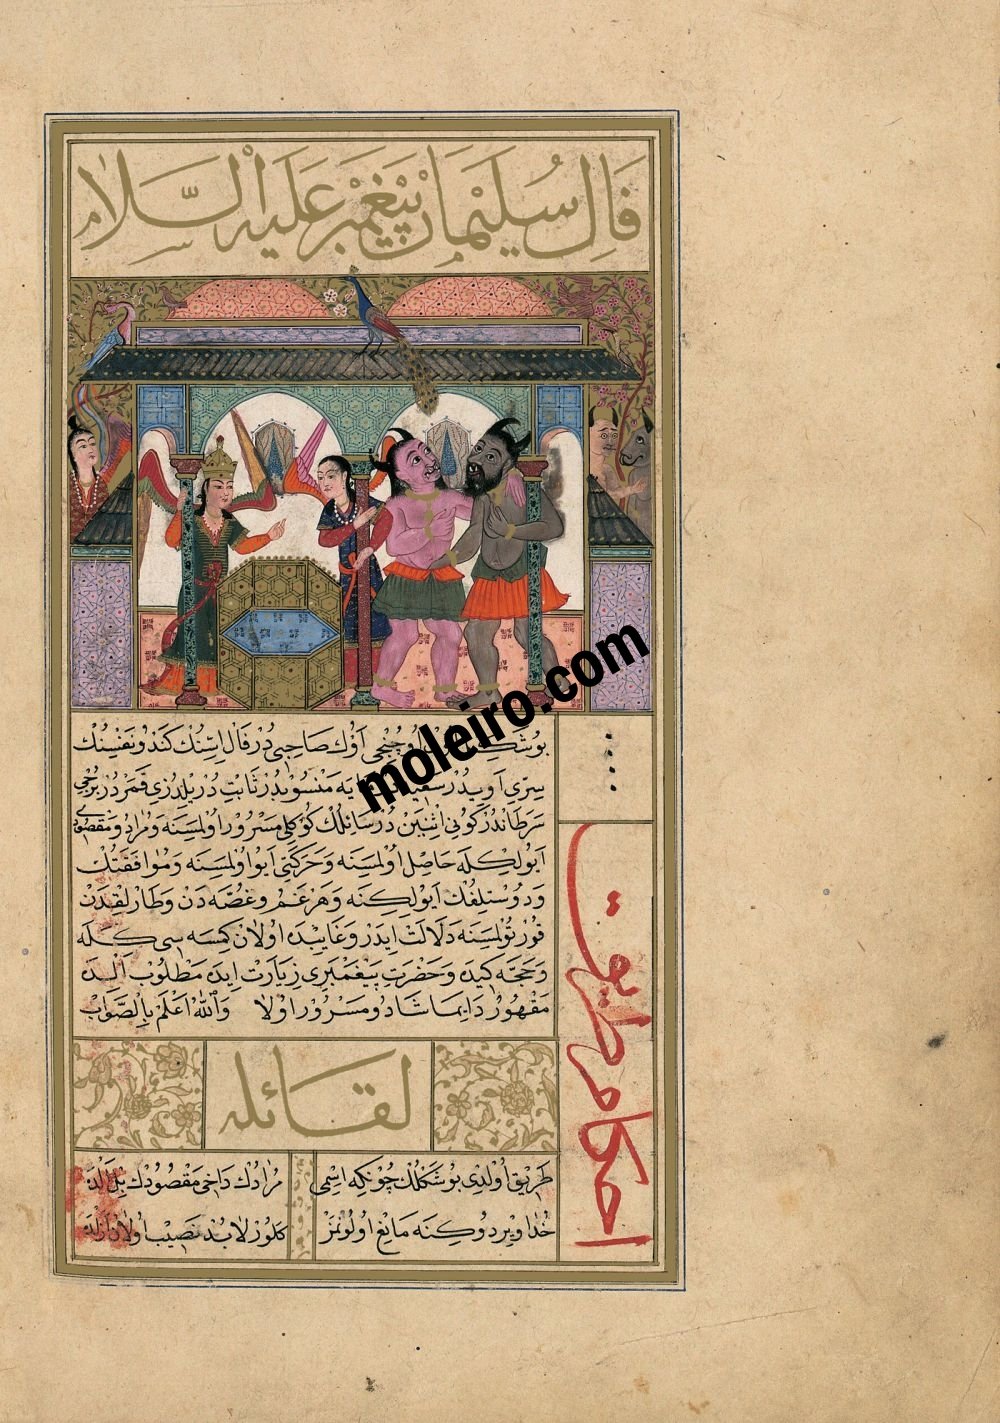 فَالِ سُلَيْمَانْ پَيْغَمْبَرْ عَلَيْهِ السَّلَامْ
moleiro.com
بوُ شَكِلْ اوُچُنْجِی اَوْكْ صَاحِبِی دُرْ فَالْ اِسِّنُكْ كَنْدوُ نَفْسِنُكْ
سِرِّی اَوِيدُرْ مَنْسوُبْدُرْ ثَابِتْ دُرْ يِلْدِزِی قَمَرْ دُرْ بُرْجِی
سَرَطَانْدُرْ كوُنِی اِثْنَيْنْ دُرْ سَائِلُكْ كوُكْلِی مَسْروُرْ اوُلْمَسِنَه وَمُرَادْ وُ مَقْصوُدِی
اَيوُلِكِلَه حَاصِلْ اوُلْمَسِنَه وَحَرَكَتِی اَيوُ اوُلْمَسِنَه وَمُوَافَقَتُكْ
وَدوُسْتلِقُكْ اَيوُلِكِنَه وَهَرْ غَمْ وَغُصَّه دَنْ وَطَارْلِقْدَنْ
قوُرْتوُلْمَسِنَه دَلَالَتْ ايدَرْ وَغَايِبْدَه اوُلَانْ كِمْسَه سِی كَلَه
وَحَجَّه كِيدَه وَحَضْرَتِ پَيْغَمْبَرِی زِيَارَتْ ايدَه مَطْلوُبْ اَلِنْدَه
مَقْهوُرْ دَايِمَا شَادْ وُ مَسْروُرْ اوُلَا وَاللّٰهُ اَعْلَمُ بِالصَّوَابْ
احكام طريق
لقائله
طَرِيقْ اوُلْدِی بوُ شَكْلُكْ چوُنْكِه اِسْمِی
مُرَادُكْ دَاخِی مَقْصوُدُكْ
خُدَا وِيرْدوُكِنَه مَانِعْ اوُلُونْمَزْ
كَلوُرْ لَابُدْ نَصِيبْ اوُلَانْ